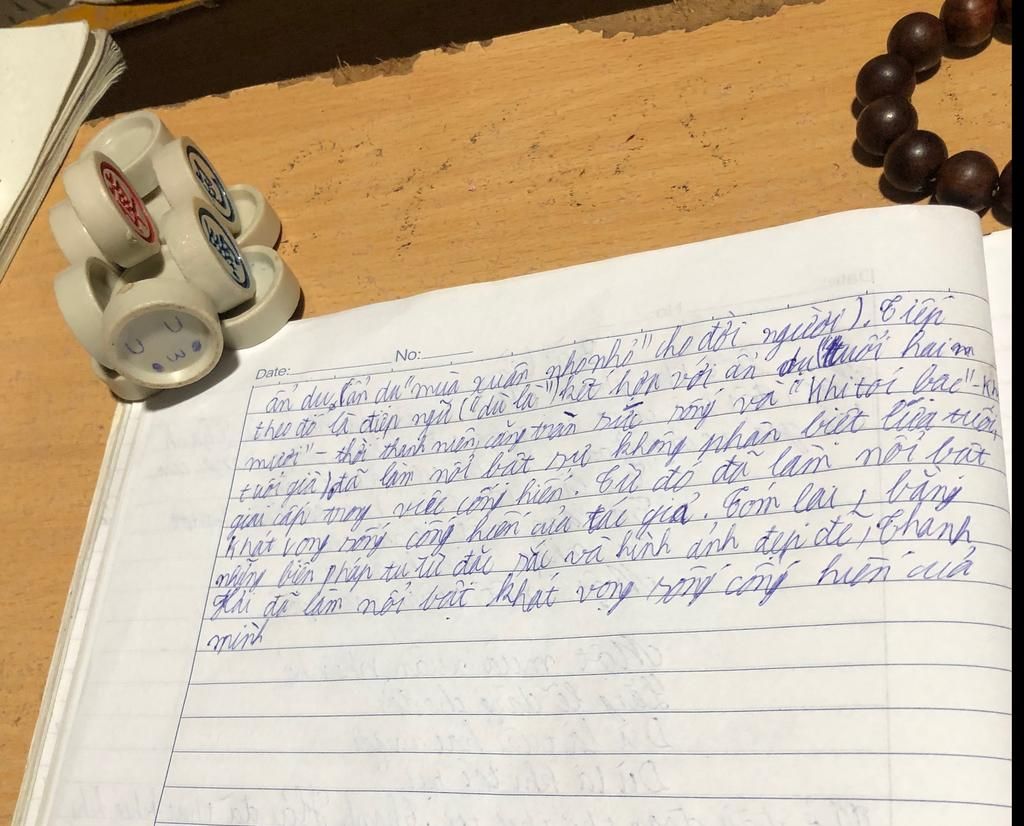 Date:
No:
ẩn dụ, (ẩn dụ "mùa xuân nho nhỏ" cho đời người). Tiếp
theo đó là điệp ngữ ("dù là") kết hợp với ẩn dụ ("tuổi hai m
mươi" - thời thanh niên, căng tràn sức sống và "Khi tóc bạc" - Kh
tuổi già) đã làm nổi bật sự không phân biệt lứa tuổi,
giai cấp trong việc cống hiến. Từ đó đã làm nổi bật
khát vọng sống cống hiến của tác giả. Tóm lại, bằng
những biện pháp tu từ đặc sắc và hình ảnh đẹp đẽ, Thanh
Hải đã làm nổi bật khát vọng sống cống hiến của
mình